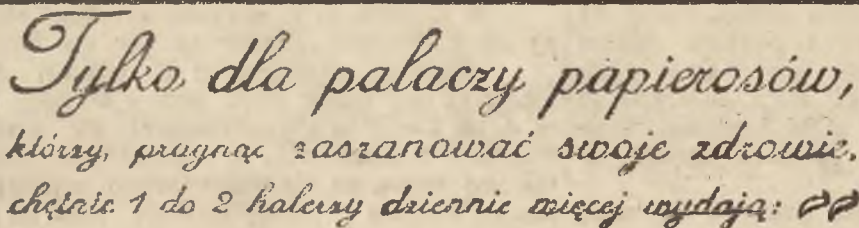 Tylko dla palaczy papierosów,
którzy, pragnąc zaszanować swoje zdrowie,
chętnie 1 do 2 halerzy dziennie więcej wydają: